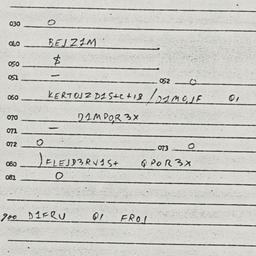 030 0
040 BEJZ1M
050 $
051 – 052 0
060 KERTOJZD1S+C+18 / D1MOJF 01
070 D1MPOR3X
071 –
072 0 073 0
080 )FLEJD3RV1S+ QPOR3X
081 0
900 D1FRU 01 FROJ